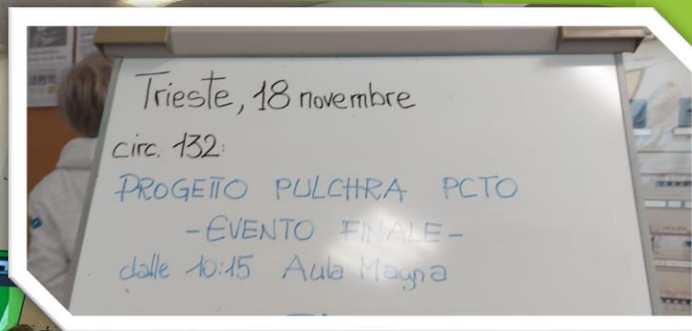 Trieste, 18 novembre
circ. 132:
PROGETTO PULCHRA PCTO
-EVENTO FINALE-
dalle 10:15 Aula Magna